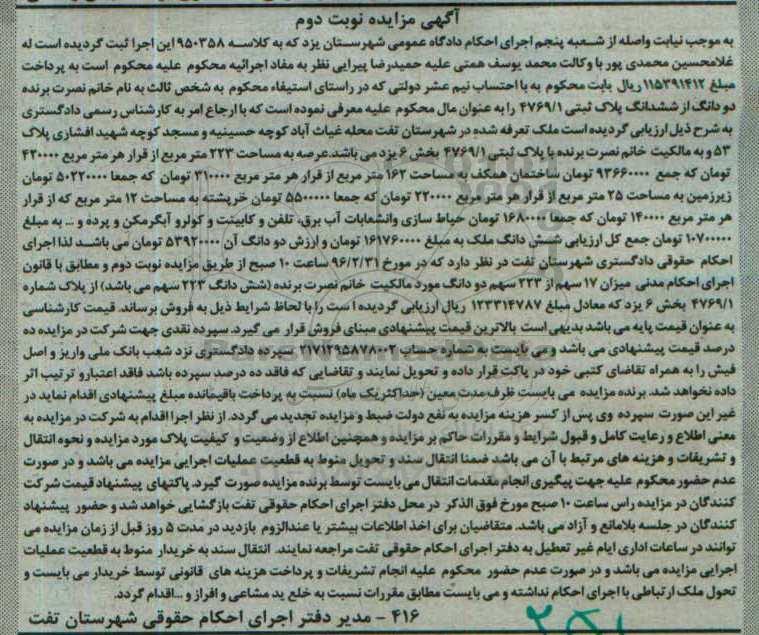 آگهی مزایده نوبت دوم
به موجب نیابت واصله از شعبه پنجم اجرای احکام دادگاه عمومی شهرستان یزد که به کلاسه ۹۵۰۳۵۸ این اجرا ثبت گردیده است له
غلامحسین محمدی پور با وکالت محمد یوسف همتی علیه حمیدرضا پیرایی نظر به مفاد اجرائیه محکوم علیه محکوم است به پرداخت
مبلغ ۱۱۵۳۹۱۴۱۲ ریال بابت محکوم به با احتساب نیم عشر دولتی که در راستای استیفاء محکوم به شخص ثالث به نام خانم نصرت برنده
دو دانگ از ششدانگ پلاک ثبتی ۴۷۶۹/۱ را به عنوان مال محکوم علیه معرفی نموده است که با ارجاع امر به کارشناس رسمی دادگستری
به شرح ذیل ارزیابی گردیده است ملک تعرفه شده در شهرستان تفت محله غیاث آباد کوچه حسینیه و مسجد کوچه شهید افشاری پلاک
۵۳ و به مالکیت خانم نصرت برنده با پلاک ثبتی ۴۷۶۹/۱ بخش ۶ یزد می باشد.عرصه به مساحت ۲۲۳ متر مربع از قرار هر متر مربع ۴۲۰۰۰۰
تومان که جمع ۹۳۶۶۰۰۰۰ تومان ساختمان همکف به مساحت ۱۶۲ متر مربع از قرار هر متر مربع ۳۱۰۰۰۰ تومان که جمعا ۵۰۲۲۰۰۰۰ تومان
زیرزمین به مساحت ۲۵ متر مربع از قرار هر متر مربع ۲۲۰۰۰۰ تومان که جمعا ۵۵۰۰۰۰۰ تومان خرپشته به مساحت ۱۲ متر مربع که از قرار
هر متر مربع ۱۴۰۰۰۰ تومان که جمعا ۱۶۸۰۰۰۰ تومان حیاط سازی وانشعابات آب برق، تلفن و کابینت و کولرو آبگرمکن و پرده و ... به مبلغ
۱۰۷۰۰۰۰۰ تومان جمع کل ارزیابی شش دانگ ملک به مبلغ ۱۶۱۷۶۰۰۰۰ تومان و ارزش دو دانگ آن ۵۳۹۲۰۰۰۰ تومان می باشد لذا اجرای
احکام حقوقی دادگستری شهرستان تفت در نظر دارد که در مورخ ۹۶/۲/۳۱ ساعت ۱۰ صبح از طریق مزایده نوبت دوم و مطابق با قانون
اجرای احکام مدنی میزان ۱۷ سهم از ۲۲۳ سهم دو دانگ مورد مالکیت خانم نصرت برنده (شش دانگ ۲۲۳ سهم می باشد) از پلاک شماره
۴۷۶۹/۱ بخش ۶ یزد که معادل مبلغ ۱۲۳۳۱۴۷۸۷ ریال ارزیابی گردیده است را با لحاظ شرایط ذیل به فروش برساند. قیمت کارشناسی
به عنوان قیمت پایه می باشد بدیهی است بالاترین قیمت پیشنهادی مبنای فروش قرار می گیرد. سپرده نقدی جهت شرکت در مزایده ده
درصد قیمت پیشنهادی می باشد و می بایست به شماره حساب ۲۱۷۱۲۹۵۸۷۸۰۰۲ سپرده دادگستری نزد شعب بانک ملی واریز و اصل
فیش را به همراه تقاضای کتبی خود در پاکت قرار داده و تحویل نمایند و تقاضایی که فاقد ده درصد سپرده باشد فاقد اعتبارو ترتیب اثر
داده نخواهد شد. برنده مزایده می بایست ظرف مدت معین (حداکثر یک ماه) نسبت به پرداخت باقیمانده مبلغ پیشنهادی اقدام نماید در
غیر این صورت سپرده وی پس از کسر هزینه مزایده به نفع دولت ضبط و مزایده تجدید می گردد. از نظر اجرا اقدام به شرکت در مزایده به
معنی اطلاع و رعایت کامل و قبول شرایط و مقررات حاکم بر مزایده و همچنین اطلاع از وضعیت و کیفیت پلاک مورد مزایده و نحوه انتقال
و تشریفات و هزینه های مرتبط با آن می باشد ضمنا انتقال سند و تحویل منوط به قطعیت عملیات اجرایی مزایده می باشد و در صورت
عدم حضور محکوم علیه جهت پیگیری انجام مقدمات انتقال می بایست توسط برنده مزایده صورت گیرد. پاکتهای پیشنهاد قیمت شرکت
کنندگان در مزایده راس ساعت ۱۰ صبح مورخ فوق الذکر در محل دفتر اجرای احکام حقوقی تفت بازگشایی خواهد شد و حضور پیشنهاد
کنندگان در جلسه بلامانع و آزاد می باشد. متقاضیان برای اخذ اطلاعات بیشتر یا عندالزوم بازدید در مدت ۵ روز قبل از زمان مزایده می
توانند در ساعات اداری ایام غیر تعطیل به دفتر اجرای احکام حقوقی تفت مراجعه نمایند. انتقال سند به خریدار منوط به قطعیت عملیات
اجرایی مزایده می باشد و در صورت عدم حضور محکوم علیه انجام تشریفات و پرداخت هزینه های قانونی توسط خریدار می بایست و
تحول ملک ارتباطی با اجرای احکام نداشته و می بایست مطابق مقررات نسبت به خلع ید مشاعی و افراز و ...اقدام گردد.
۴۱۶ - مدیر دفتر اجرای احکام حقوقی شهرستان تفت